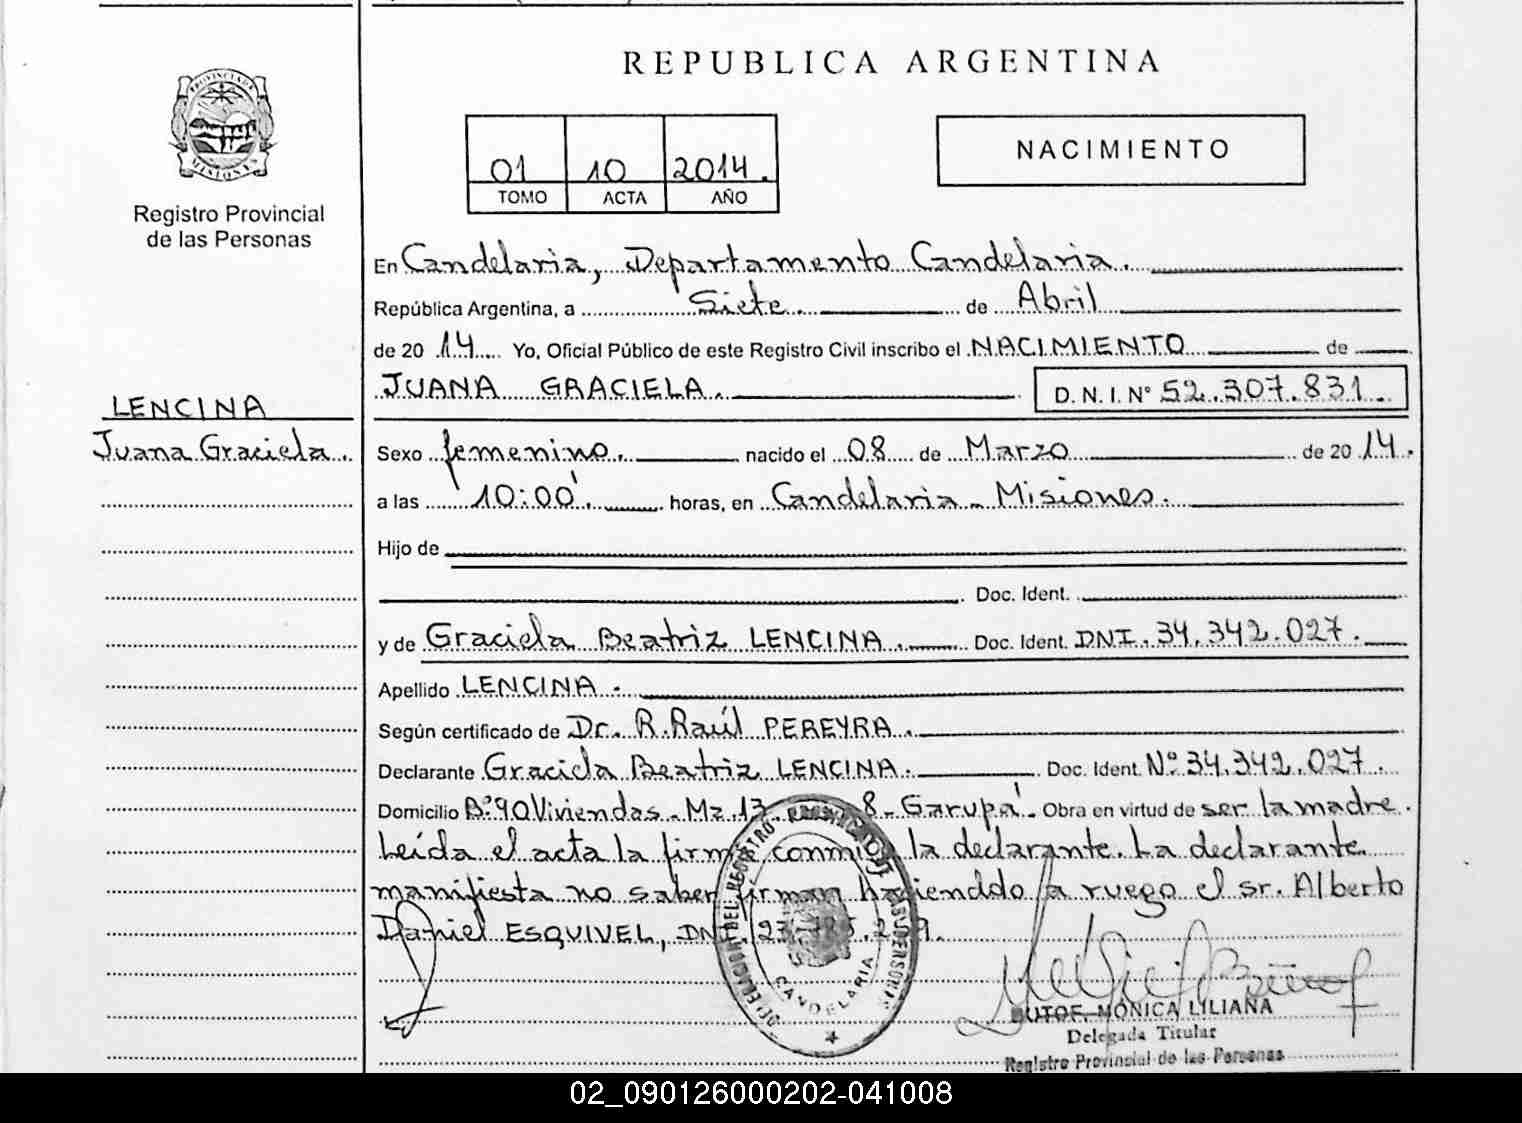 REPUBLICA ARGENTINA
PROVINCIA DE
MISIONES
01 10 2014.
TOMO ACTA AÑO
NACIMIENTO
Registro Provincial
de las Personas
En Candelaria, Departamento Candelaria.
República Argentina, a Siete. de Abril
de 20 14 Yo, Oficial Público de este Registro Civil inscribo el NACIMIENTO de
JUANA GRACIELA. D. N. I. N° 52.307.831.
LENCINA
Juana Graciela.
Sexo femenino. nacido el 08 de Marzo de 20 14.
a las 10:00'. horas, en Candelaria - Misiones.
Hijo de
Doc. Ident.
y de Graciela Beatriz LENCINA. Doc. Ident. DNI. 34.342.027.
Apellido LENCINA.
Según certificado de Dr. R. Raúl PEREYRA.
Declarante Graciela Beatriz LENCINA. Doc. Ident. N° 34.342.027.
Domicilio B° 90 Viviendas - Mz. 13 8 - Garupá - Obra en virtud de ser la madre.
Leída el acta la firma conmigo la declarante. La declarante
manifiesta no saber firmar hacienddo a ruego el sr. Alberto
Daniel ESQUIVEL, DNI.
DELEGACION DEL REGISTRO PROVINCIAL DE LAS PERSONAS
CANDELARIA
DUTOF. MONICA LILIANA
Delegada Titular
Registro Provincial de las Personas
02_090126000202-041008